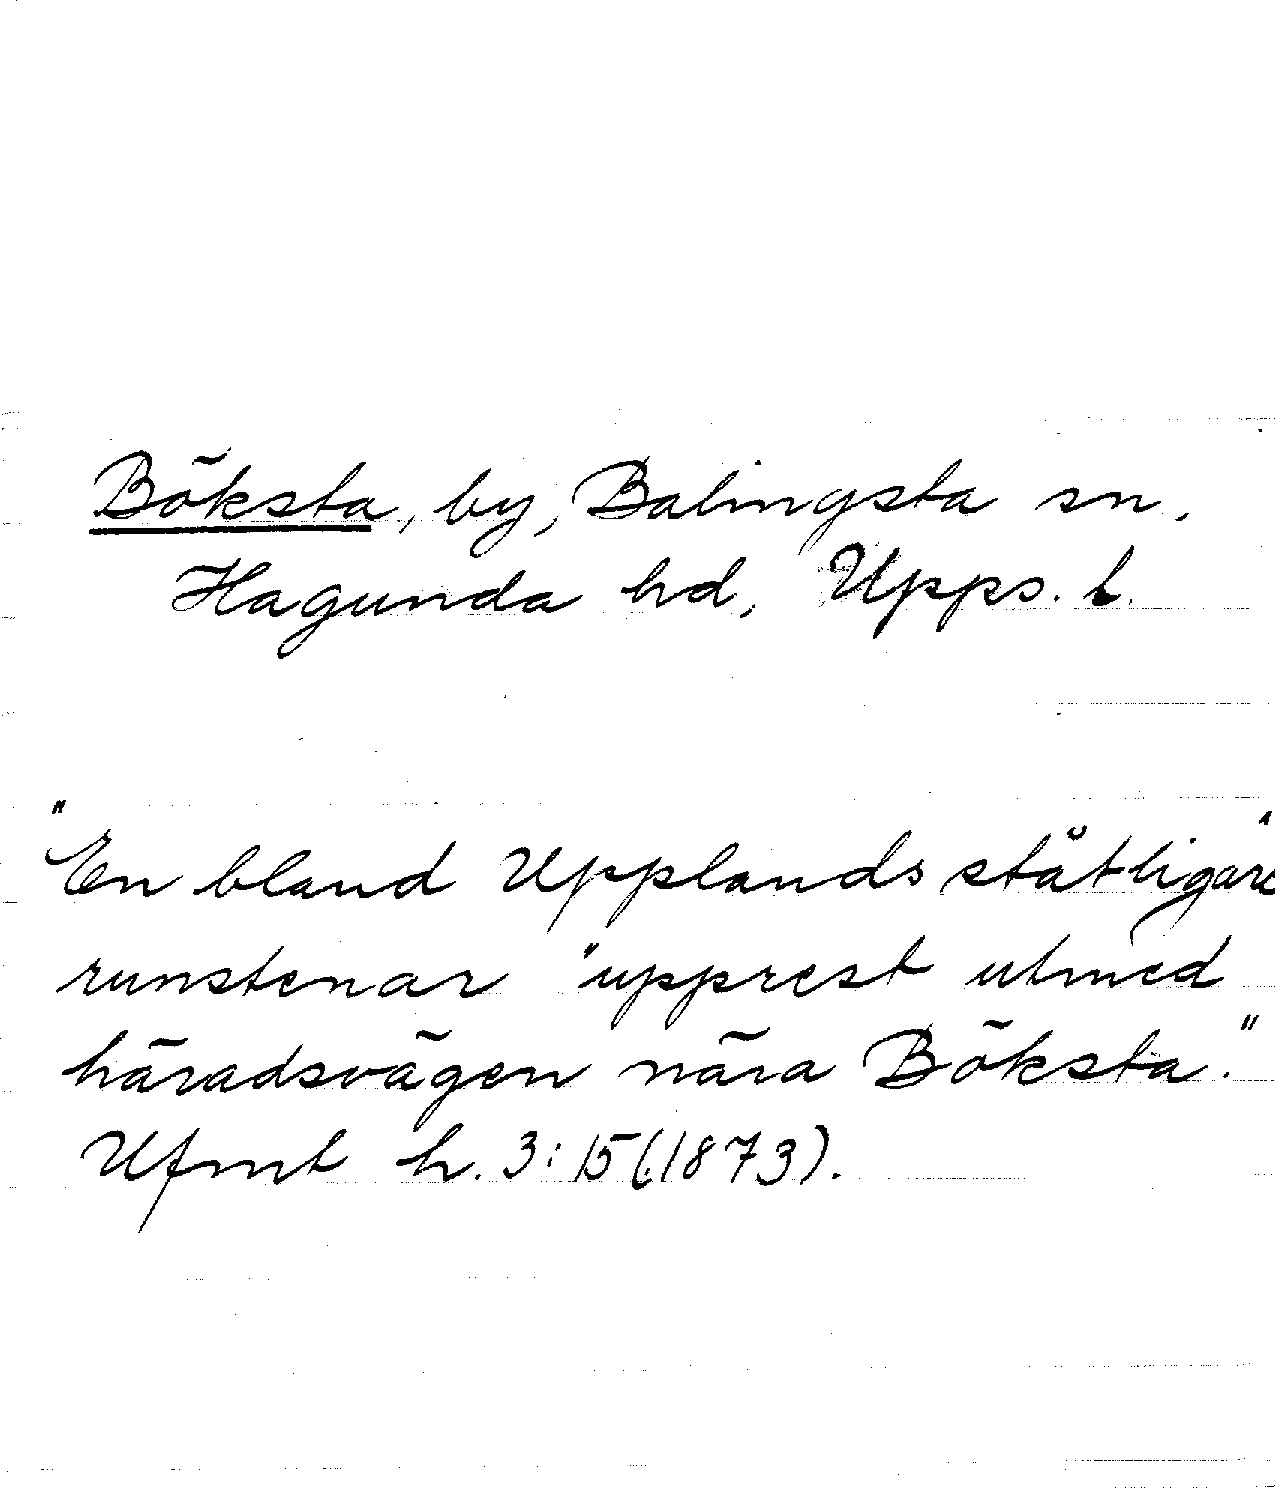 Böksta, by, Balingsta sn,
Hagunda hd, Upps. l.
"En bland Upplands ståtligare"
runstenar "upprest utmed
häradsvägen nära Böksta."
Ufmt h. 3:15 (1873).